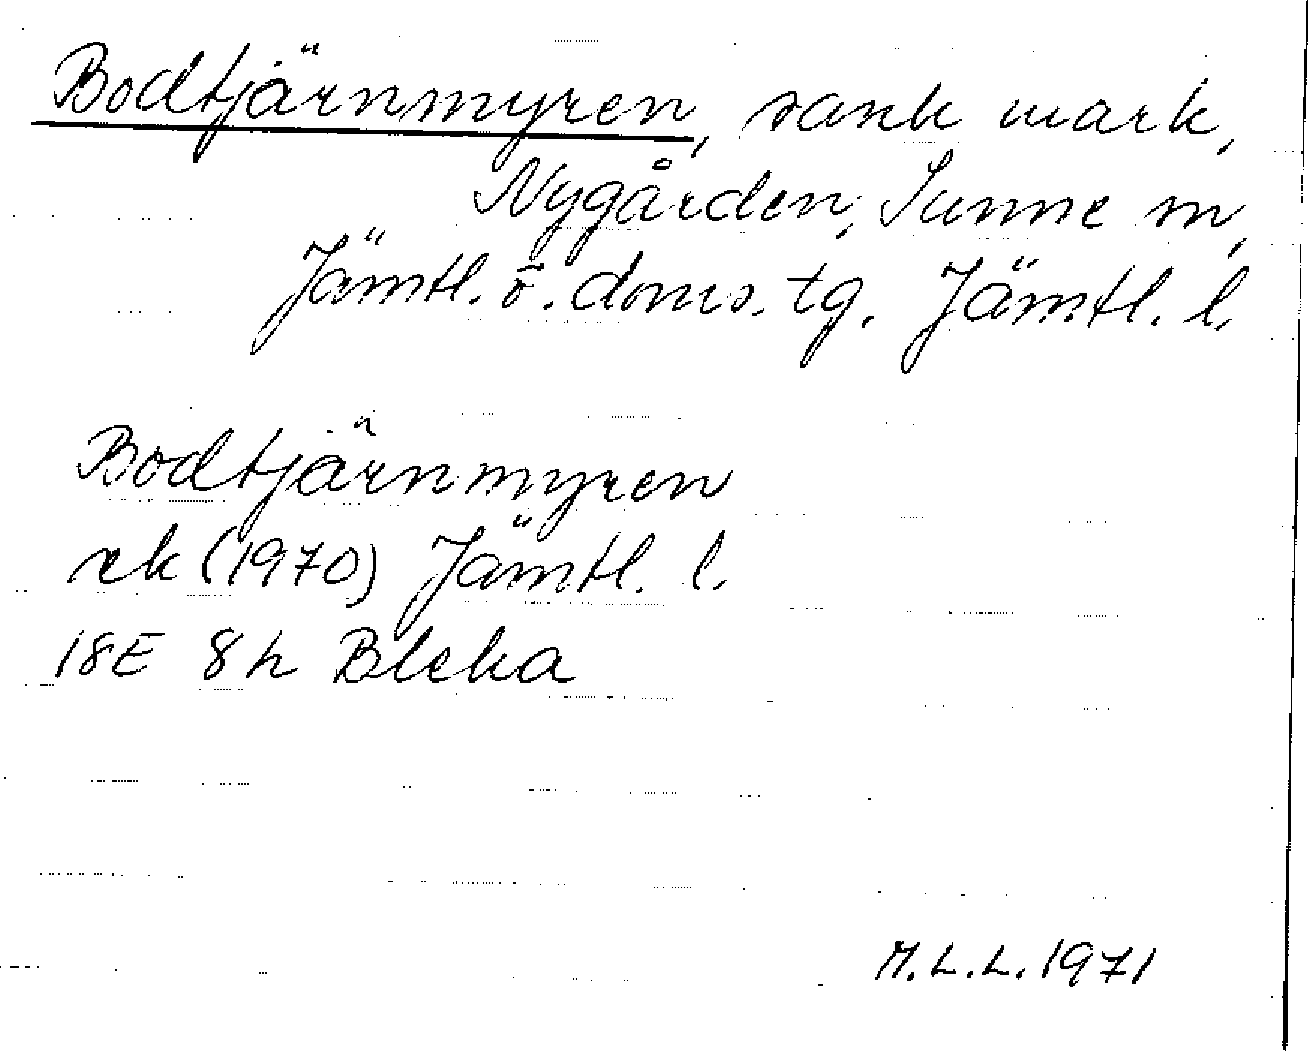 Bodtjärnmyren, sank mark,
Nygården, Sunne sn,
Jämtl. ö. doms. tg. Jämtl. l.
Bodtjärnmyren
ek (1970) Jämtl. l.
18E 8h Bleka
M.L.L. 1971